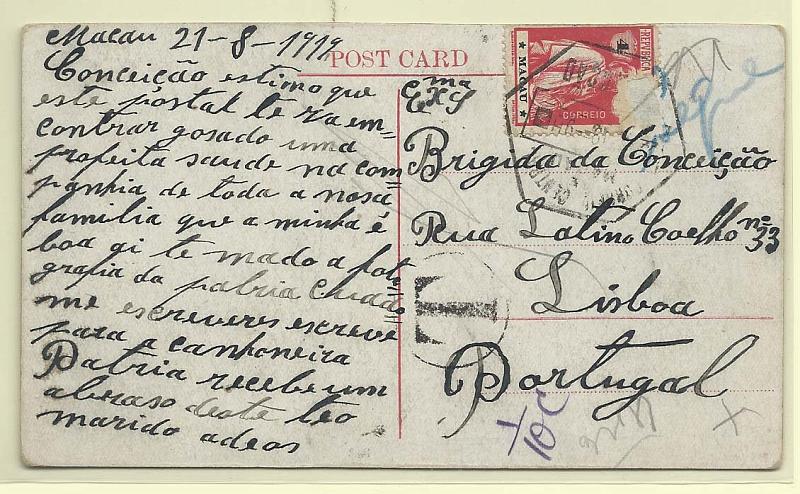 Macau 21-8-1919
POST CARD
Conceição estimo que
este postal te va em-
contrar gosado uma
profeita saude na com
panhia de toda a nosa
familia que a minha é
boa ai te mado a foto
grafia da patria cuado
me escreveres escreve
para a canhoneira
Patria recebe um
abraso deste teo
marido adeos
REPUBLICA
MACAU
4
CORREIO
Exma
Brigida da Conceição
Rua Latino Coelho nº 33
Lisboa
Portugal
T
1/10 c